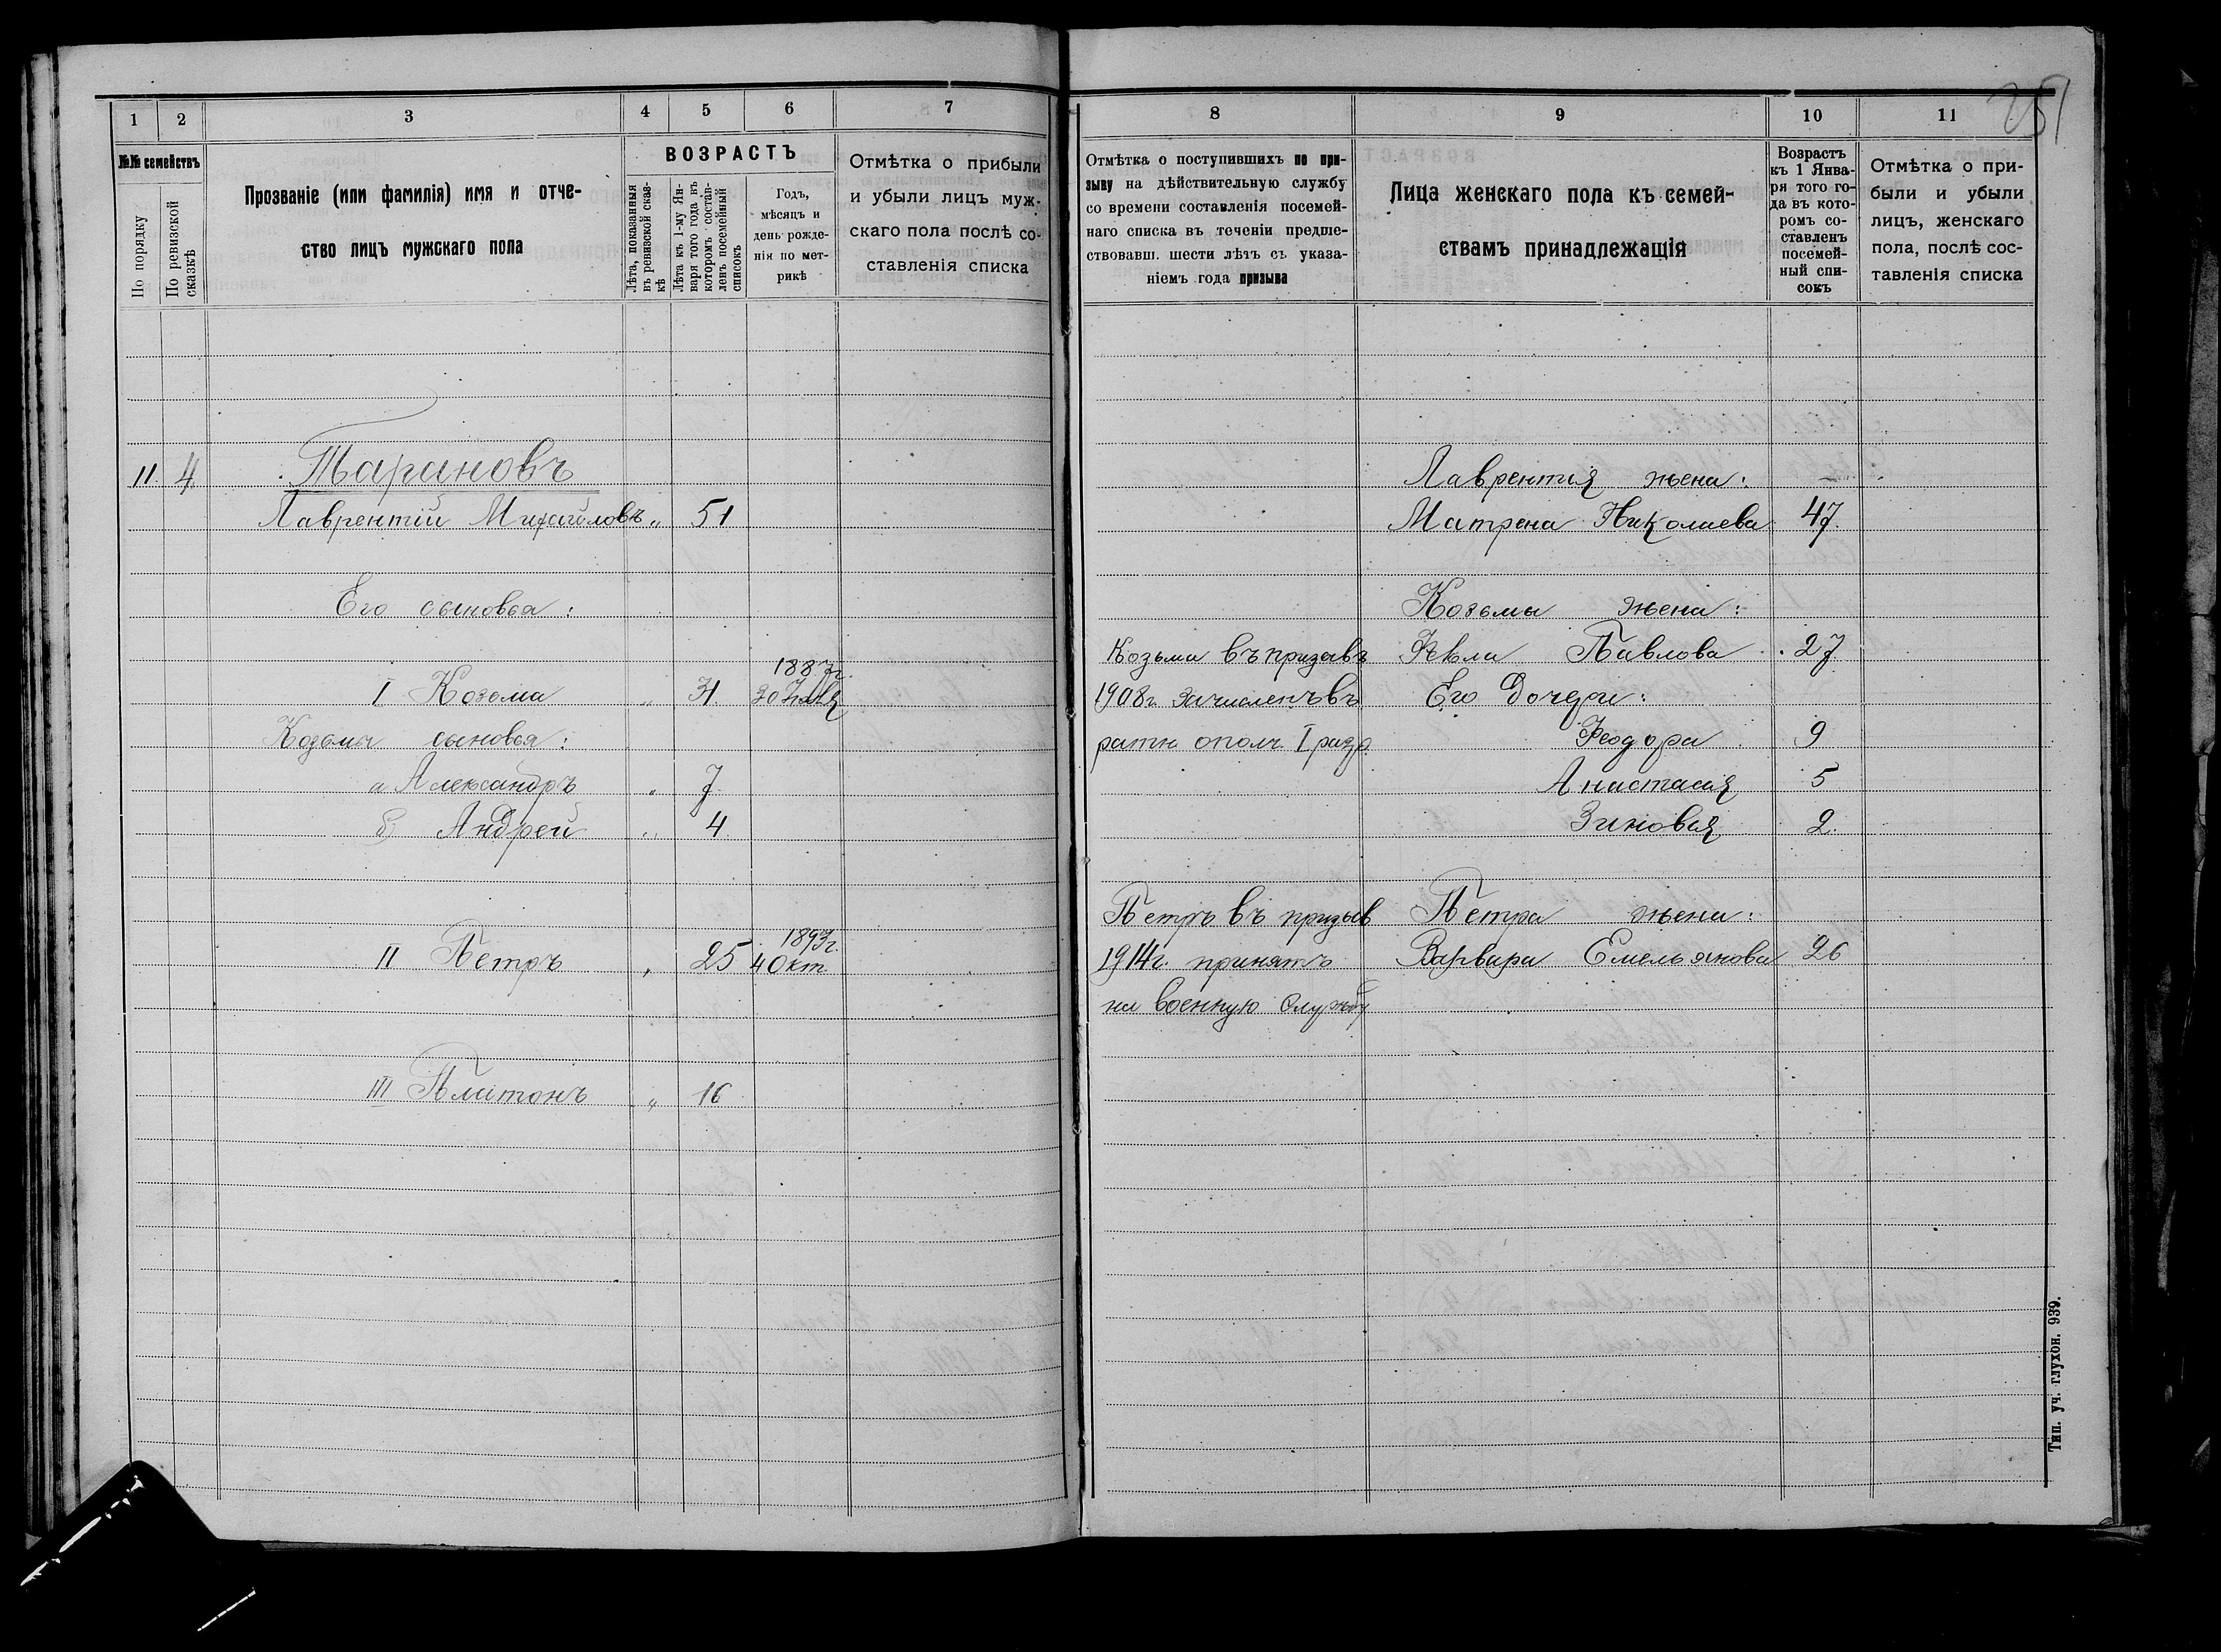 251
1 2 3 4 5 6 7
№№ семействъ
По порядку
По ревизской сказкѣ
Прозваніе (или фамилія) имя и отче-
ство лицъ мужскаго пола
ВОЗРАСТЪ
Лѣта, показанныя
въ ревизской сказ-
кѣ
Лѣта къ 1-му Ян-
варя того года въ
которомъ состав-
ленъ посемейный
списокъ
Годъ,
мѣсяцъ и
день рожде-
нія по мет-
рикѣ
Отмѣтка о прибыли
и убыли лицъ муж-
скаго пола послѣ со-
ставленія списка
11. 4. Тарановъ
Лаврентій Михайловъ „ 51
Его сыновья:
I Козьма „ 31. 1887г. 30 Іюня
Козьмы сыновья:
а Александръ „ 7.
б) Андрей „ 4
II Петръ „ 25 1893г. 4 Окт.
III Платонъ „ 16
8 9 10 11
Отмѣтка о поступившихъ по при-
зыву на дѣйствительную службу
со времени составленія посемей-
наго списка въ теченіи предше-
ствовавш. шести лѣтъ съ указа-
ніемъ года призыва
Лица женскаго пола къ семей-
ствамъ принадлежащія
Возрастъ
къ 1 Янва-
ря того го-
да въ кото-
ромъ со-
ставленъ
посемей-
ный спи-
сокъ
Отмѣтка о при-
были и убыли
лицъ, женскаго
пола, послѣ сос-
тавленія списка
Лаврентія жена:
Матрена Николаева 47.
Козьмы жена:
Козьма въ призывъ Ѳекла Павлова 27.
1908г. зачисленъ въ Его дочери:
ратн. ополч. I разр. Ѳеодора 9
Анастасія 5
Зиновія 2.
Петръ въ призыв Петра жена:
1914г. принятъ Варвара Емельянова 26
на военную службу
Тип. уч. глухон. 939.